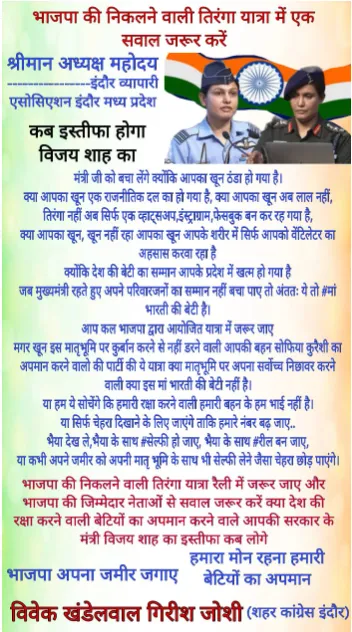 भाजपा की निकलने वाली तिरंगा यात्रा में एक
सवाल जरूर करें
श्रीमान अध्यक्ष महोदय
----------------इंदौर व्यापारी
एसोसिएशन इंदौर मध्य प्रदेश
कब इस्तीफा होगा
विजय शाह का
मंत्री जी को बचा लेंगे क्योंकि आपका खून ठंडा हो गया है।
क्या आपका खून एक राजनीतिक दल का हो गया है, क्या आपका खून अब लाल नहीं,
तिरंगा नहीं अब सिर्फ एक व्हाट्सअप,इंस्ट्राग्राम,फेसबुक बन कर रह गया है,
क्या आपका खून, खून नहीं रहा आपका खून आपके शरीर में सिर्फ आपको वेंटिलेटर का
अहसास करवा रहा है
क्योंकि देश की बेटी का सम्मान आपके प्रदेश में खत्म हो गया है
जब मुख्यमंत्री रहते हुए अपने परिवारजनों का सम्मान नहीं बचा पाए तो अंततः ये तो #मां
भारती की बेटी है।
आप कल भाजपा द्वारा आयोजित यात्रा में जरूर जाए
मगर खून इस मातृभूमि पर कुर्बान करने से नहीं डरने वाली आपकी बहन सोफिया कुरैशी का
अपमान करने वालो की पार्टी की ये यात्रा क्या मातृभूमि पर अपना सर्वोच्च निछावर करने
वाली क्या इस मां भारती की बेटी नहीं है।
या हम ये सोचेंगे कि हमारी रक्षा करने वाली हमारी बहन के हम भाई नहीं है।
या सिर्फ चेहरा दिखाने के लिए जाएंगे ताकि हमारे नंबर बढ़ जाए..
भैया देख ले,भैया के साथ #सेल्फी हो जाए, भैया के साथ #रील बन जाए,
या कभी अपने जमीर को अपनी मातृ भूमि के साथ भी सेल्फी लेने जैसा चेहरा छोड़ पाएंगे।
भाजपा की निकलने वाली तिरंगा यात्रा रैली में जरूर जाए और
भाजपा की जिम्मेदार नेताओं से सवाल जरूर करें क्या देश की
रक्षा करने वाली बेटियों का अपमान करने वाले आपकी सरकार के
मंत्री विजय शाह का इस्तीफा कब लोगे
हमारा मोन रहना हमारी
भाजपा अपना जमीर जगाए
बेटियों का अपमान
विवेक खंडेलवाल गिरीश जोशी (शहर कांग्रेस इंदौर)